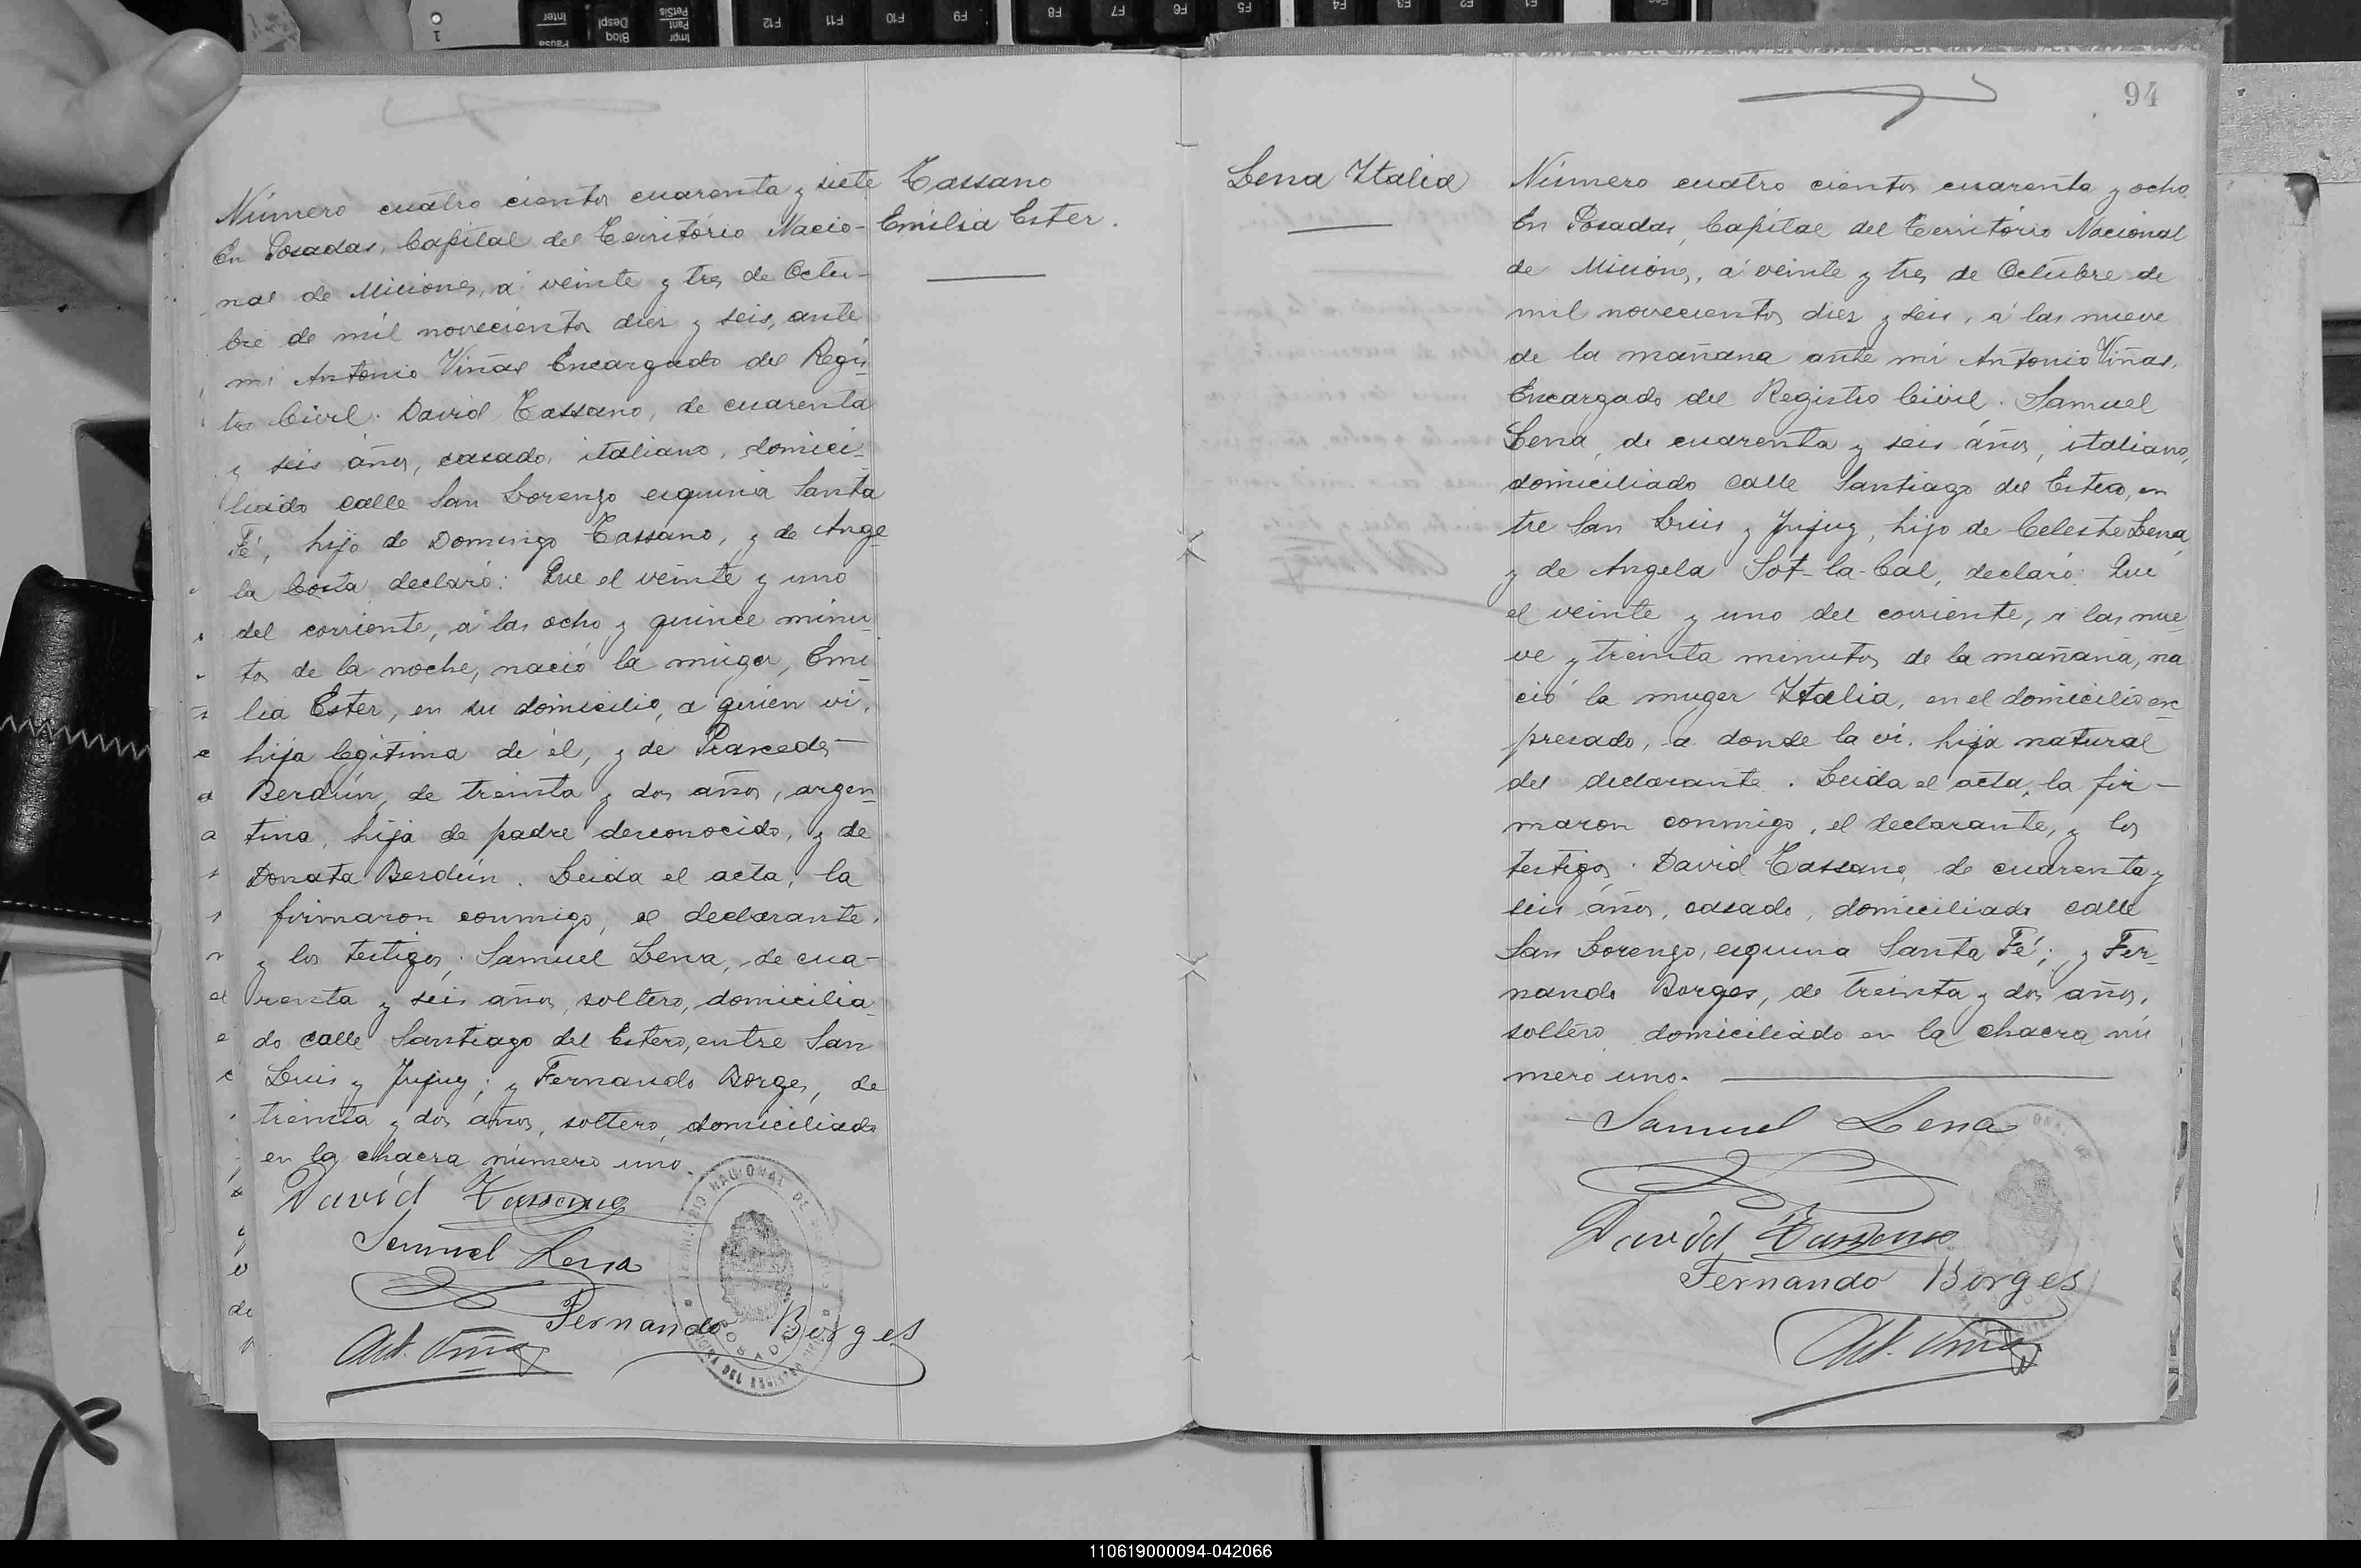 Número cuatro cientos cuarenta y siete
En Posadas, Capital del Territorio Nacio-
nal de Misiones, a veinte y tres de Octu-
bre de mil novecientos diez y seis, ante
mi Antonio Viñas Encargado del Regis-
tro Civil. David Tassano, de cuarenta
y seis años, casado, italiano, domici-
liado calle San Lorenzo esquina Santa
Fé, hijo de Domingo Tassano, y de Ange-
la Costa declaró: Que el veinte y uno
del corriente, a las ocho y quince minu-
tos de la noche, nació la muger, Emi-
lia Ester, en su domicilio, a quien vi,
hija legítima de él, y de Praxcedes
Berdún, de treinta y dos años, argen-
tina, hija de padre desconocido, y de
Donata Berdún. Leida el acta, la
firmaron conmigo, el declarante,
y los testigos; Samuel Lena, de cua-
renta y seis años, soltero, domicilia-
do calle Santiago del Estero, entre San
Luis y Jujuy; y Fernando Borges, de
treinta y dos años, soltero, domiciliado
en la chacra número uno.
David Tassano
Samuel Lena
Fernando Borges
Ant. Viñas
TERRITORIO NACIONAL DE
POSADAS
OFICINA DEL REGISTRO
Tassano
Emilia Ester.
94
Lena Italia
Número cuatro cientos cuarenta y ocho
En Posadas, Capital del Territorio Nacional
de Misiones, a veinte y tres de Octubre de
mil novecientos diez y seis, a las nueve
de la mañana ante mi Antonio Viñas,
Encargado del Registro Civil. Samuel
Lena, de cuarenta y seis años, italiano,
domiciliado calle Santiago del Estero, en
tre San Luis y Jujuy, hijo de Celeste Lena,
y de Angela Sot-la-Cal, declaró: Que
el veinte y uno del corriente, a las nue-
ve y treinta minutos de la mañana, na
ció la muger Italia, en el domicilio ex-
presado, a donde la vi. hija natural
del declarante. Leida el acta, la fir-
maron conmigo, el declarante, y los
testigos. David Tassano, de cuarenta y
seis años, casado, domiciliado calle
San Lorenzo, esquina Santa Fé; y Fer-
nando Borges, de treinta y dos años,
soltero domiciliado en la chacra nú
mero uno.
Samuel Lena
David Tassano
Fernando Borges
Ant. Viñas
110619000094-042066